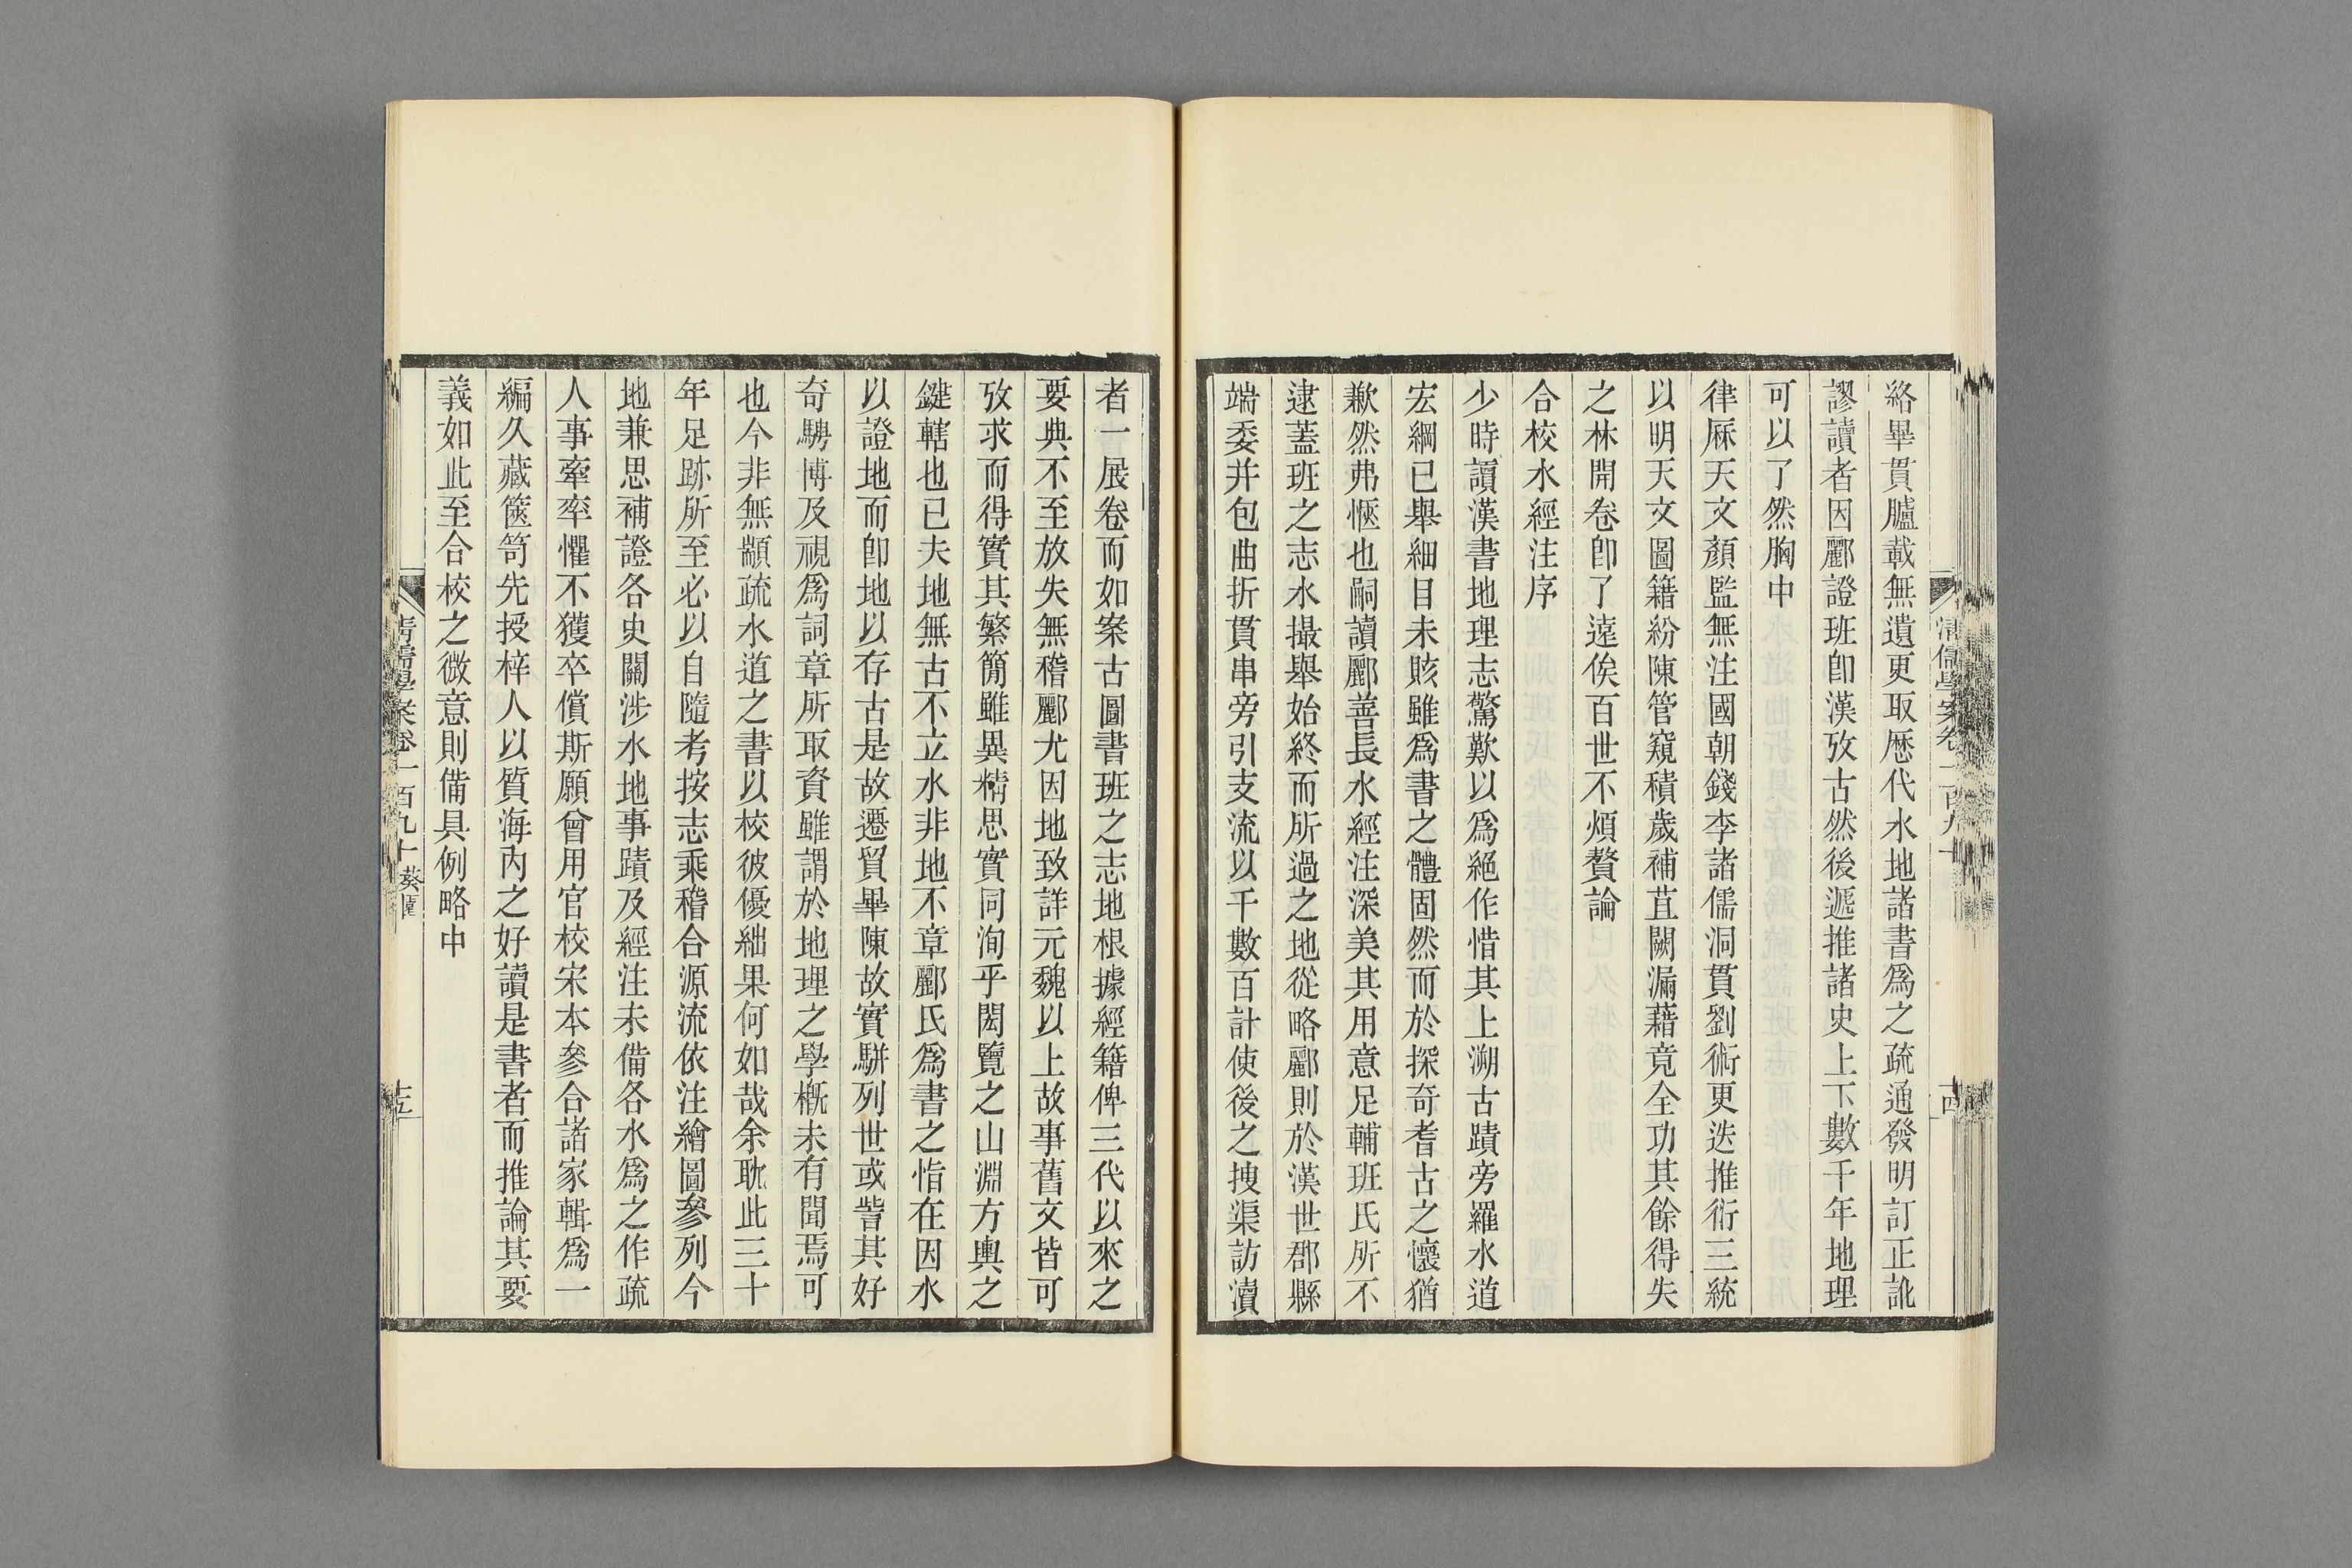 絡畢貫臚載無遺更取歷代水地諸書爲之疏通發明訂正訛
謬讀者因酈證班卽漢攷古然後遞推諸史上下數千年地理
可以了然胸中
律厤天文顏監無注國朝錢李諸儒洞貫劉術更迭推衍三統
以明天文圖籍紛陳管窺積歲補苴闕漏藉竟全功其餘得失
之林開卷卽了遠俟百世不煩贅論
合校水經注序
少時讀漢書地理志驚歎以爲絕作惜其上溯古蹟旁羅水道
宏綱已舉細目未賅雖爲書之體固然而於探奇耆古之懷猶
歉然弗愜也嗣讀酈善長水經注深美其用意足輔班氏所不
逮蓋班之志水撮舉始終而所過之地從略酈則於漢世郡縣
端委并包曲折貫串旁引支流以千數百計使後之搜渠訪瀆
者一展卷而如案古圖書班之志地根據經籍俾三代以來之
要典不至放失無稽酈尤因地致詳元魏以上故事舊文皆可
攷求而得實其繁簡雖異精思實同洵乎閎覽之山淵方輿之
鍵轄也已夫地無古不立水非地不章酈氏爲書之恉在因水
以證地而卽地以存古是故遷貿畢陳故實駢列世或訾其好
奇騁博及視爲詞章所取資雖謂於地理之學槪未有聞焉可
也今非無顓疏水道之書以校彼優絀果何如哉余耽此三十
年足跡所至必以自隨考按志乘稽合源流依注繪圖參列今
地兼思補證各史關涉水地事蹟及經注未備各水爲之作疏
人事牽率懼不獲卒償斯願曾用官校宋本參合諸家輯爲一
編久藏篋笥先授梓人以質海內之好讀是書者而推論其要
義如此至合校之微意則備具例略中
清儒學案卷一百九十 葵園
十五